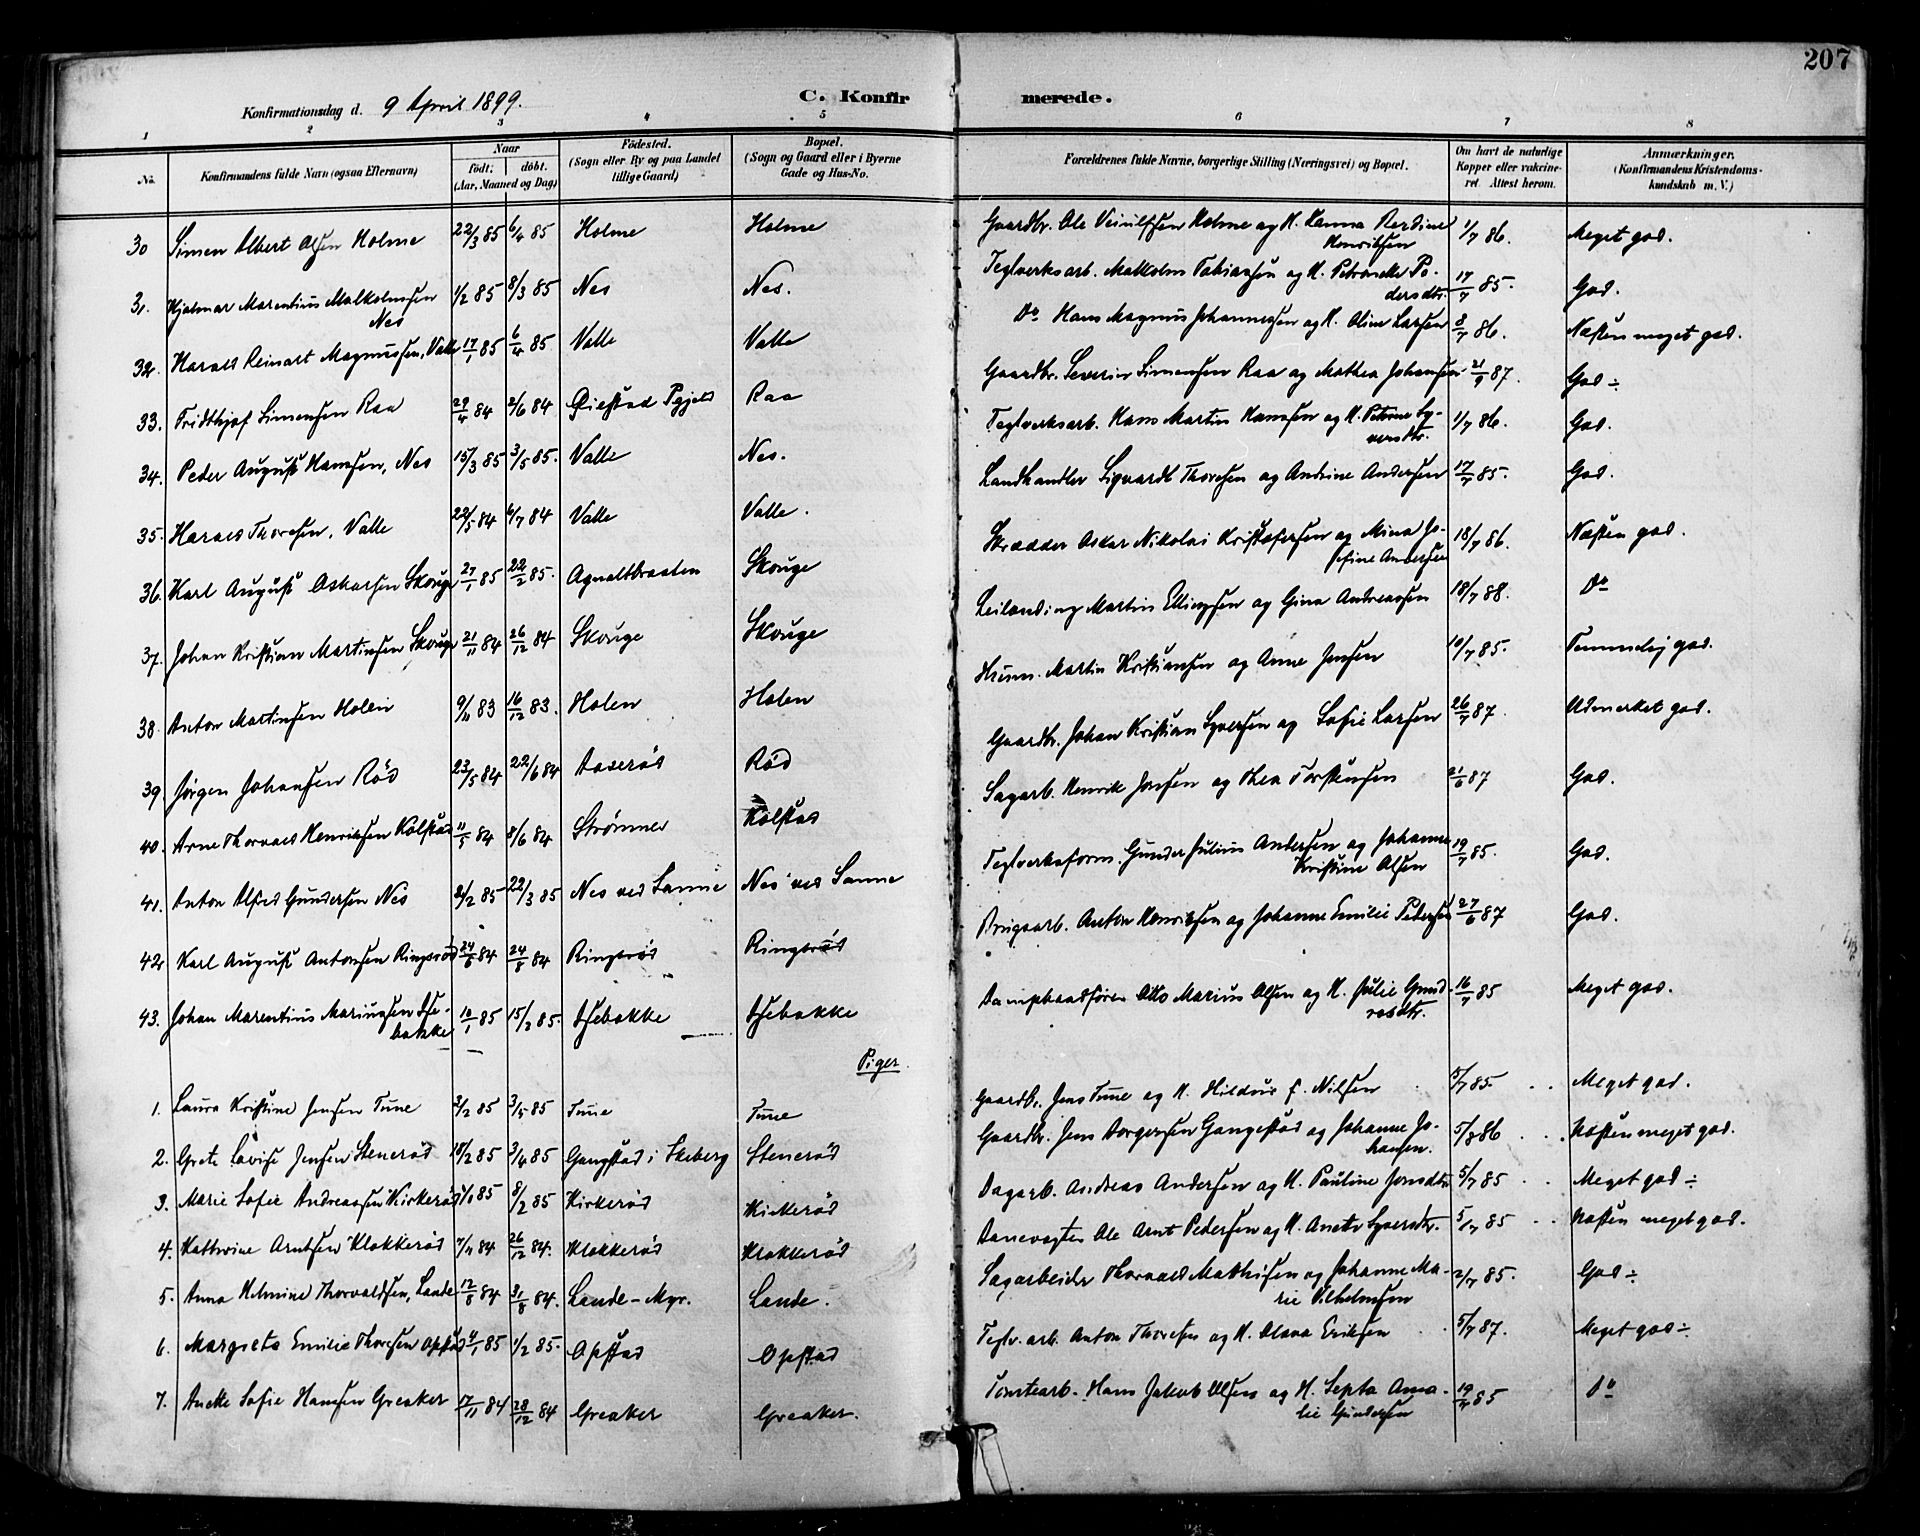 207
Konfirmationsdag d. 9 April 1899.
C. Konfirmerede.
1 2 3 4 5 6 7 8
No.
Konfirmandens fulde Navn (ogsaa Efternavn)
Naar
født, døbt.
(Aar, Maaned og Dag)
Fødested.
(Sogn eller By og paa Landet
tillige Gaard)
Bopæl.
(Sogn og Gaard eller i Byerne
Gade og Hus-No.
Forældrenes fulde Navne, borgerlige Stilling (Næringsvei) og Bopæl.
Om havt de naturlige
Kopper eller vakcine-
ret. Attest herom.
Anmærkninger.
(Konfirmandens Kristendoms-
kundskab m. V.)
30 Simen Albert Olsen Holme 22/3 85 6/4 85 Holme Holme Gaardbr. Ole Holme og H. Hanna
Henriksen 1/7 86. Meget god.
31. Hjalmar Marentius Malkolmsen
Nes 1/2 85 8/3 85 Nes Nes. Teglverksarb. Malkolm Tobiassen og H. Petronelle Pe-
dersdtr. 17/7 85. God.
32. Harald Reinart Magnussen, Valle 17/1 85 6/4 85 Valle Valle Do Hans Magnus Johannessen og H. Oline Larsen 8/7 86. Næsten meget god.
33. Fridthjof Simensen Raa 29/4 84 2/6 84 Øiestad Pgjeld Raa Gaardbr. Severin Simensen Raa og Mathea Johansen 21/9 87. God ÷
34. Peder August Hansen, Nes 15/3 85 3/5 85. Valle Nes. Teglverksarb. Hans Martin Hansen og H. Petrine Sy-
versdtr. 1/7 86. God.
35. Harald Thoresen, Valle 22/5 84 6/7 84 Valle Valle. Landhandler Sigvardt Thoresen og Andrine Andersen 17/7 85. God.
36. Karl August Oskarsen Skouge 27/1 85 22/2 85. Agnaltbraaten Skouge Skrædder Oskar Nikolai Kristofersen og Mina Jo-
sefine Andersen 18/7 86. Næsten god.
37. Johan Kristian Martinsen Skouge 21/11 84 26/12 84 Skouge Skouge Leilending Martin Ellingsen og Gina Andreassen 18/7 88. Do
38. Anton Martinsen Holen 9/11 83 16/12 83. Holen Holen Husm. Martin Kristiansen og Anne Jensen 10/7 85. Temmelig god.
39. Jørgen Johansen Rød 23/5 84 22/6 84 Aaserød Rød Gaardbr. Johan Kristian Syversen og Sofie Larsen 26/7 87. Udmerket god.
40. Arne Thorvald Henriksen Kolstad 11/5 84 8/6 84 Strømnes Kolstad Sagarb. Henrik Jensen og Thea Torstensen 21/6 87 God.
41. Anton Alfred Gundersen Nes 21/2 85 22/3 85 Nes ved Sanne Nes ved Sanne Teglverksform. Gunder Julius Andersen og Johanne
Kristine Olsen 19/7 85. God.
42 Karl August Antonsen Ringsrød 24/6 84 24/8 84 Ringsrød Ringsrød Brugsarb. Anton Henriksen og Johanne Emilie Petersen 27/6 87 God.
43. Johan Marentius Mariussen Ise-
bakke 10/1 85 15/2 85. Isebakke Isebakke Dampbaadfører Otto Marius Olsen og H. Julie Gund-
resdtr. 16/7 85 Meget god.
Piger.
1. Laura Kristine Jensen Tune 3/2 85 3/5 85 Tune Tune Gaardb. Jens Tune og H. Hildur f. Nilsen 5/7 85. Meget god.
2. Grete Lovise Jensen Stenerød 18/2 85 3/4 85 Gangstad i Skeberg Stenerød Gaardbr. Jens Gangestad og Johanne Jo-
hansen. 5/8 86 Næsten meget god.
3. Marie Sofie Andreassen Kirkerød 85 8/2 85 Kirkerød Kirkerød Dagarb. Andreas Andersen og H. Pauline Jensdtr 5/7 85 Meget god ÷
4. Kathrine Arntsen Klokkerød 7/11 84 26/12 84. Klokkerød Klokkerød Banevogter Ole Arnt Pedersen og H. Anette Syversdtr. 5/7 85 Næsten meget god.
5. Anna Helmine Thorvaldsen, Lande 12/8 84 31/8 84. Lande-Myr. Lande. Sagarbeider Thorvald Mathisen og Johanne Ma-
rie Vilhelmsen 2/7 85. God ÷
6. Margreta Emilie Thoresen Opstad 4/1 85 1/2 85. Opstad Opstad Teglv. arb. Anton Thoresen og H. Olava Eriksen 5/7 87. Meget god ÷
7. Anette Sofie Hansen Greaker 17/11 84 28/12 84 Greaker Greaker. Tomtearb. Hans Jakob Olsen og H. Septa Ama-
lie Gundersen 19/7 85 Do